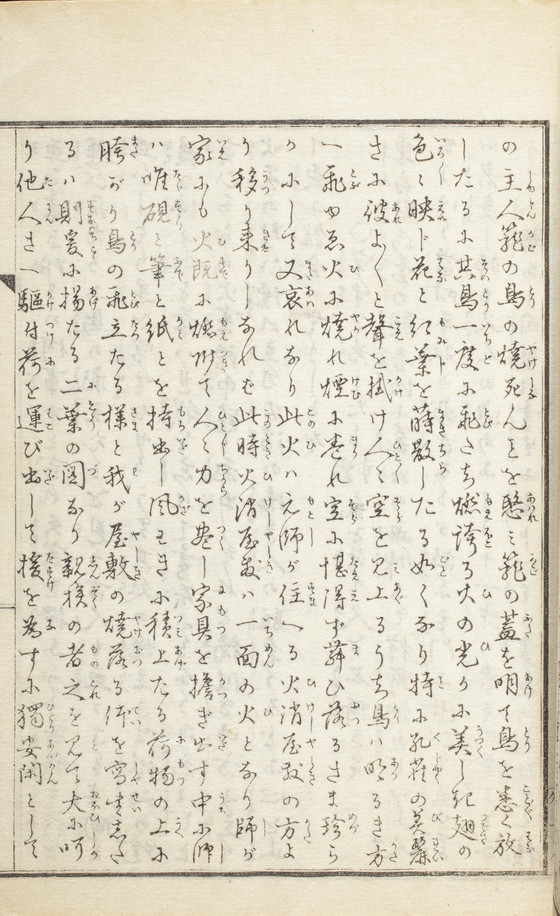 の主人籠の鳥の焼死んとを愍ミ籠の蓋を明て鳥を悉く放
したるに其鳥一度に飛たち燃誇る火の光りに美しき翅の
色ゝ映ト花と紅葉を蒔散したる如くなり特に孔雀の美麗
さに彼よ〳〵と聲を掛け人ゝ空を見上るうち鳥ハ明るき方
へ飛ゆゑ火に焼れ煙に巻れ空に堪得ず舞ひ落るさま珍ら
かにして又哀れなり此火ハ元師が住へる火消屋敷の方よ
り移り来りしなれば此時火消屋敷ハ一面の火となり師が
家にも火既に燃附て人ゝ力を盡し家具を擔ぎ出す中に師
ハ唯硯と筆と紙とを持出し風わきに積上たる荷物の上に
胯がり鳥の飛立たる様と我が屋敷の焼落る体を寫生したる
るハ則爰に揚たる二葉の図なり親族の者之を見て大に呵
り他人さへ驅付荷を運び出して援を為すに獨安閑として